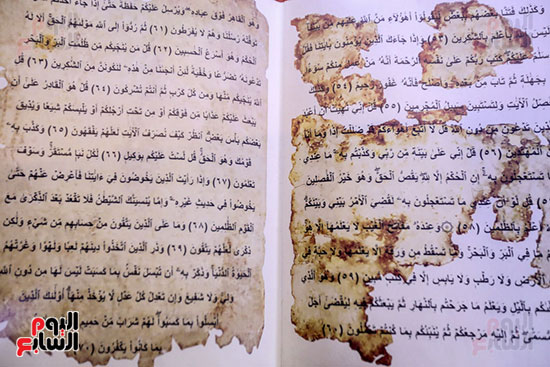 وكذلك فتنا بعضهم ببعض ليقولوا أهؤلاء من الله عليهم من بيننا
أليس الله بأعلم بالشكرين (٥٣) وإذا جاءك الذين يؤمنون بايتنا فقل
سلم عليكم كتب ربكم على نفسه الرحمة أنه من عمل منكم سوءا
بجهلة ثم تاب من بعده وأصلح فأنه غفور رحيم (٥٤)
نفصل الآيت ولتستبين سبيل المجرمين (٥٥) قل إني نهيت أن أعبد
الذين تدعون من دون الله قل لا أتبع أهواءكم قد ضللت إذا وما أنا
من المهتدين (٥٦) قل إني على بينة من ربي وكذبتم به ما عندي
ما تستعجلون به إن الحكم إلا لله يقص الحق وهو خير الفصلين
(٥٧) قل لو أن عندي ما تستعجلون به لقضي الأمر بيني وبينكم
والله أعلم بالظلمين (٥٨) وعنده مفاتح الغيب لا يعلمها إلا هو
ويعلم ما في البر والبحر وما تسقط من ورقة إلا يعلمها ولا حبة في
ظلمت الأرض ولا رطب ولا يابس إلا في كتب مبين (٥٩) وهو الذي
يتوفكم بالليل ويعلم ما جرحتم بالنهار ثم يبعثكم فيه ليقضى أجل
مسمى ثم إليه مرجعكم ثم ينبئكم بما كنتم تعملون (٦٠)
وهو القاهر فوق عباده ويرسل عليكم حفظة حتى إذا جاء أحدكم
توفته رسلنا وهم لا يفرطون (٦١) ثم ردوا إلى الله مولهم الحق ألا له
الحكم وهو أسرع الحسبين (٦٢) قل من ينجيكم من ظلمت البر والبحر
تدعونه تضرعا وخفية لئن أنجنا من هذه لنكونن من الشكرين (٦٣) قل
الله ينجيكم منها ومن كل كرب ثم أنتم تشركون (٦٤) قل هو القادر على أن
يبعث عليكم عذابا من فوقكم أو من تحت أرجلكم أو يلبسكم شيعا ويذيق
بعضكم بأس بعض انظر كيف نصرف الآيت لعلهم يفقهون (٦٥) وكذب به
قومك وهو الحق قل لست عليكم بوكيل (٦٦) لكل نبإ مستقر وسوف
تعلمون (٦٧) وإذا رأيت الذين يخوضون في ءايتنا فأعرض عنهم حتى
يخوضوا في حديث غيره وإما ينسينك الشيطن فلا تقعد بعد الذكرى مع
القوم الظلمين (٦٨) وما على الذين يتقون من حسابهم من شيء ولكن
ذكرى لعلهم يتقون (٦٩) وذر الذين اتخذوا دينهم لعبا ولهوا وغرتهم
الحيوة الدنيا وذكر به أن تبسل نفس بما كسبت ليس لها من دون الله
ولي ولا شفيع وإن تعدل كل عدل لا يؤخذ منها أولئك الذين
أبسلوا بما كسبوا لهم شراب من حميم
بما كانوا يكفرون
اليوم السابع